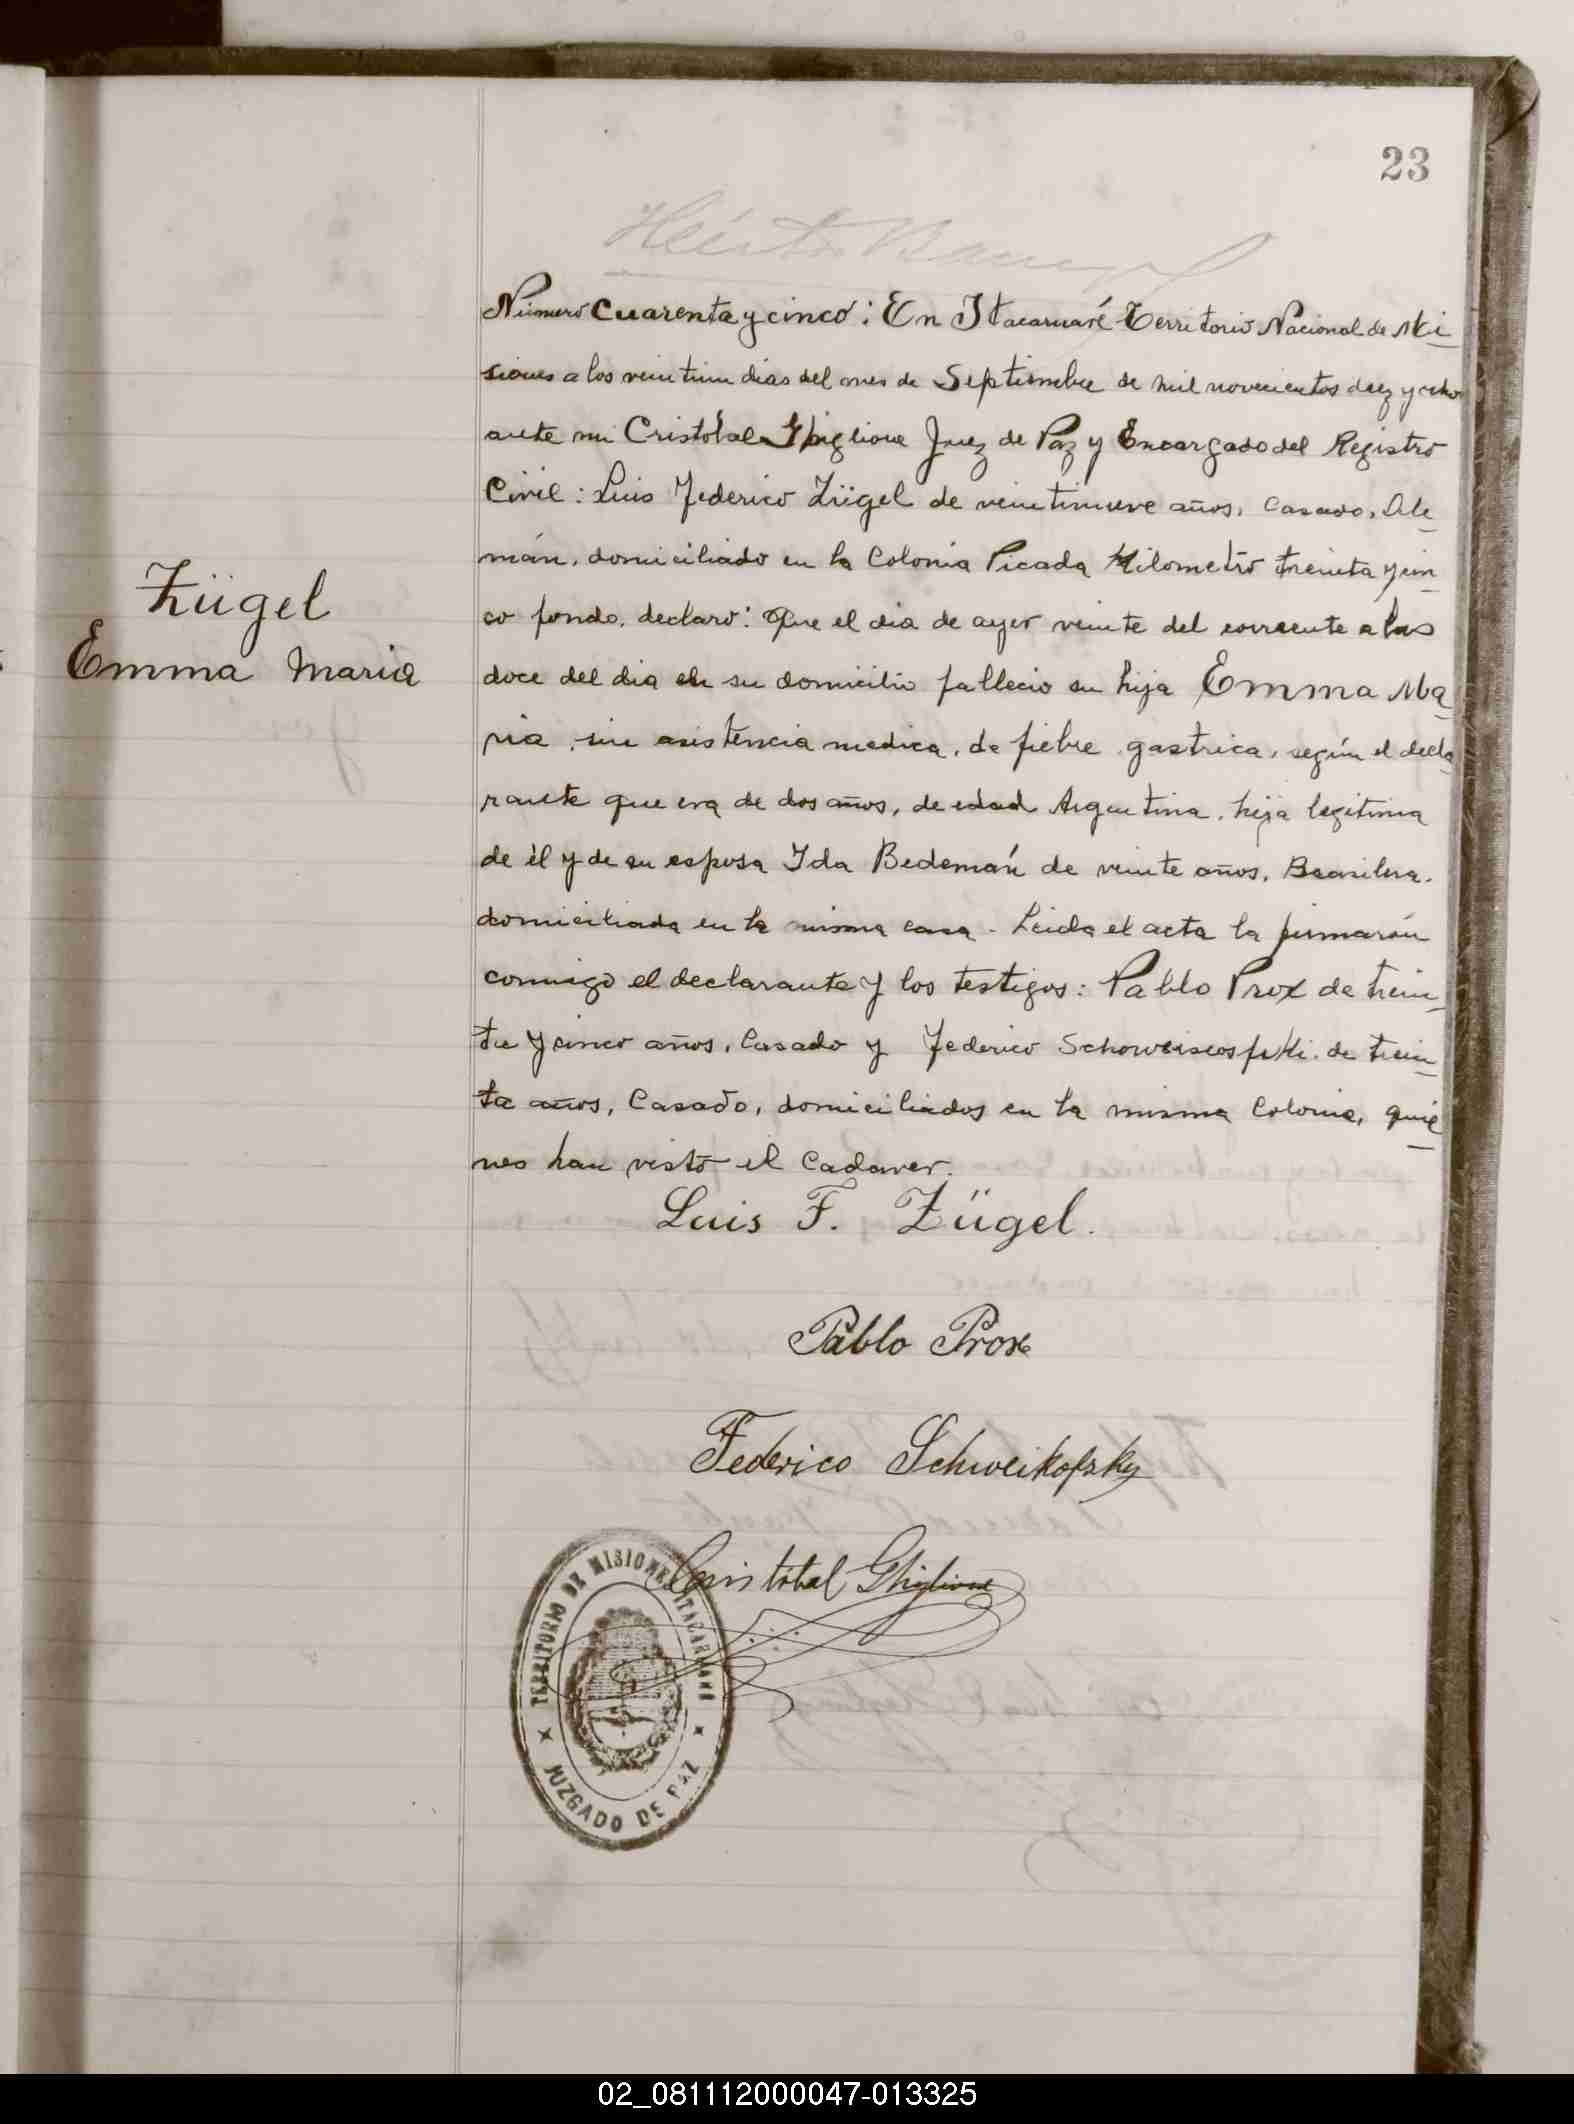 23
Número Cuarenta y cinco: En Itacaruaré Territorio Nacional de Mi-
siones a los veintiun dias del mes de Septiembre de mil novecientos diez y ocho
ante mi Cristobal Ghiglione Juez de Paz y Encargado del Registro
Civil: Luis Federico Zügel de veintinueve años, Casado, Ale-
mán, domiciliado en la Colonia Picada Kilometro treinta y cin-
co fondo, declaro: Que el dia de ayer veinte del corriente a las
doce del dia en su domicilio fallecio su hija Emma Ma-
ria, sin asistencia medica, de fiebre gastrica, según el decla-
rante que era de dos años, de edad Argentina, hija legitima
de él y de su esposa Ida Bedemań de veinte años, Brasilera.
domiciliada en la misma casa - Leida el acta la firmarón
conmigo el declarante y los testigos: Pablo Prox de trein-
ta y cinco años, Casado y Federico de trein-
ta años, Casado, domiciliados en la misma Colonia, quie-
nes han visto el Cadaver.
Zügel
Emma Maria
Luis F. Zügel.
Pablo Prox
Federico Schweikofsky
Cristóbal Ghiglione
TERRITORIO DE MISIONES ITACARUARE
JUZGADO DE PAZ
02_081112000047-013325